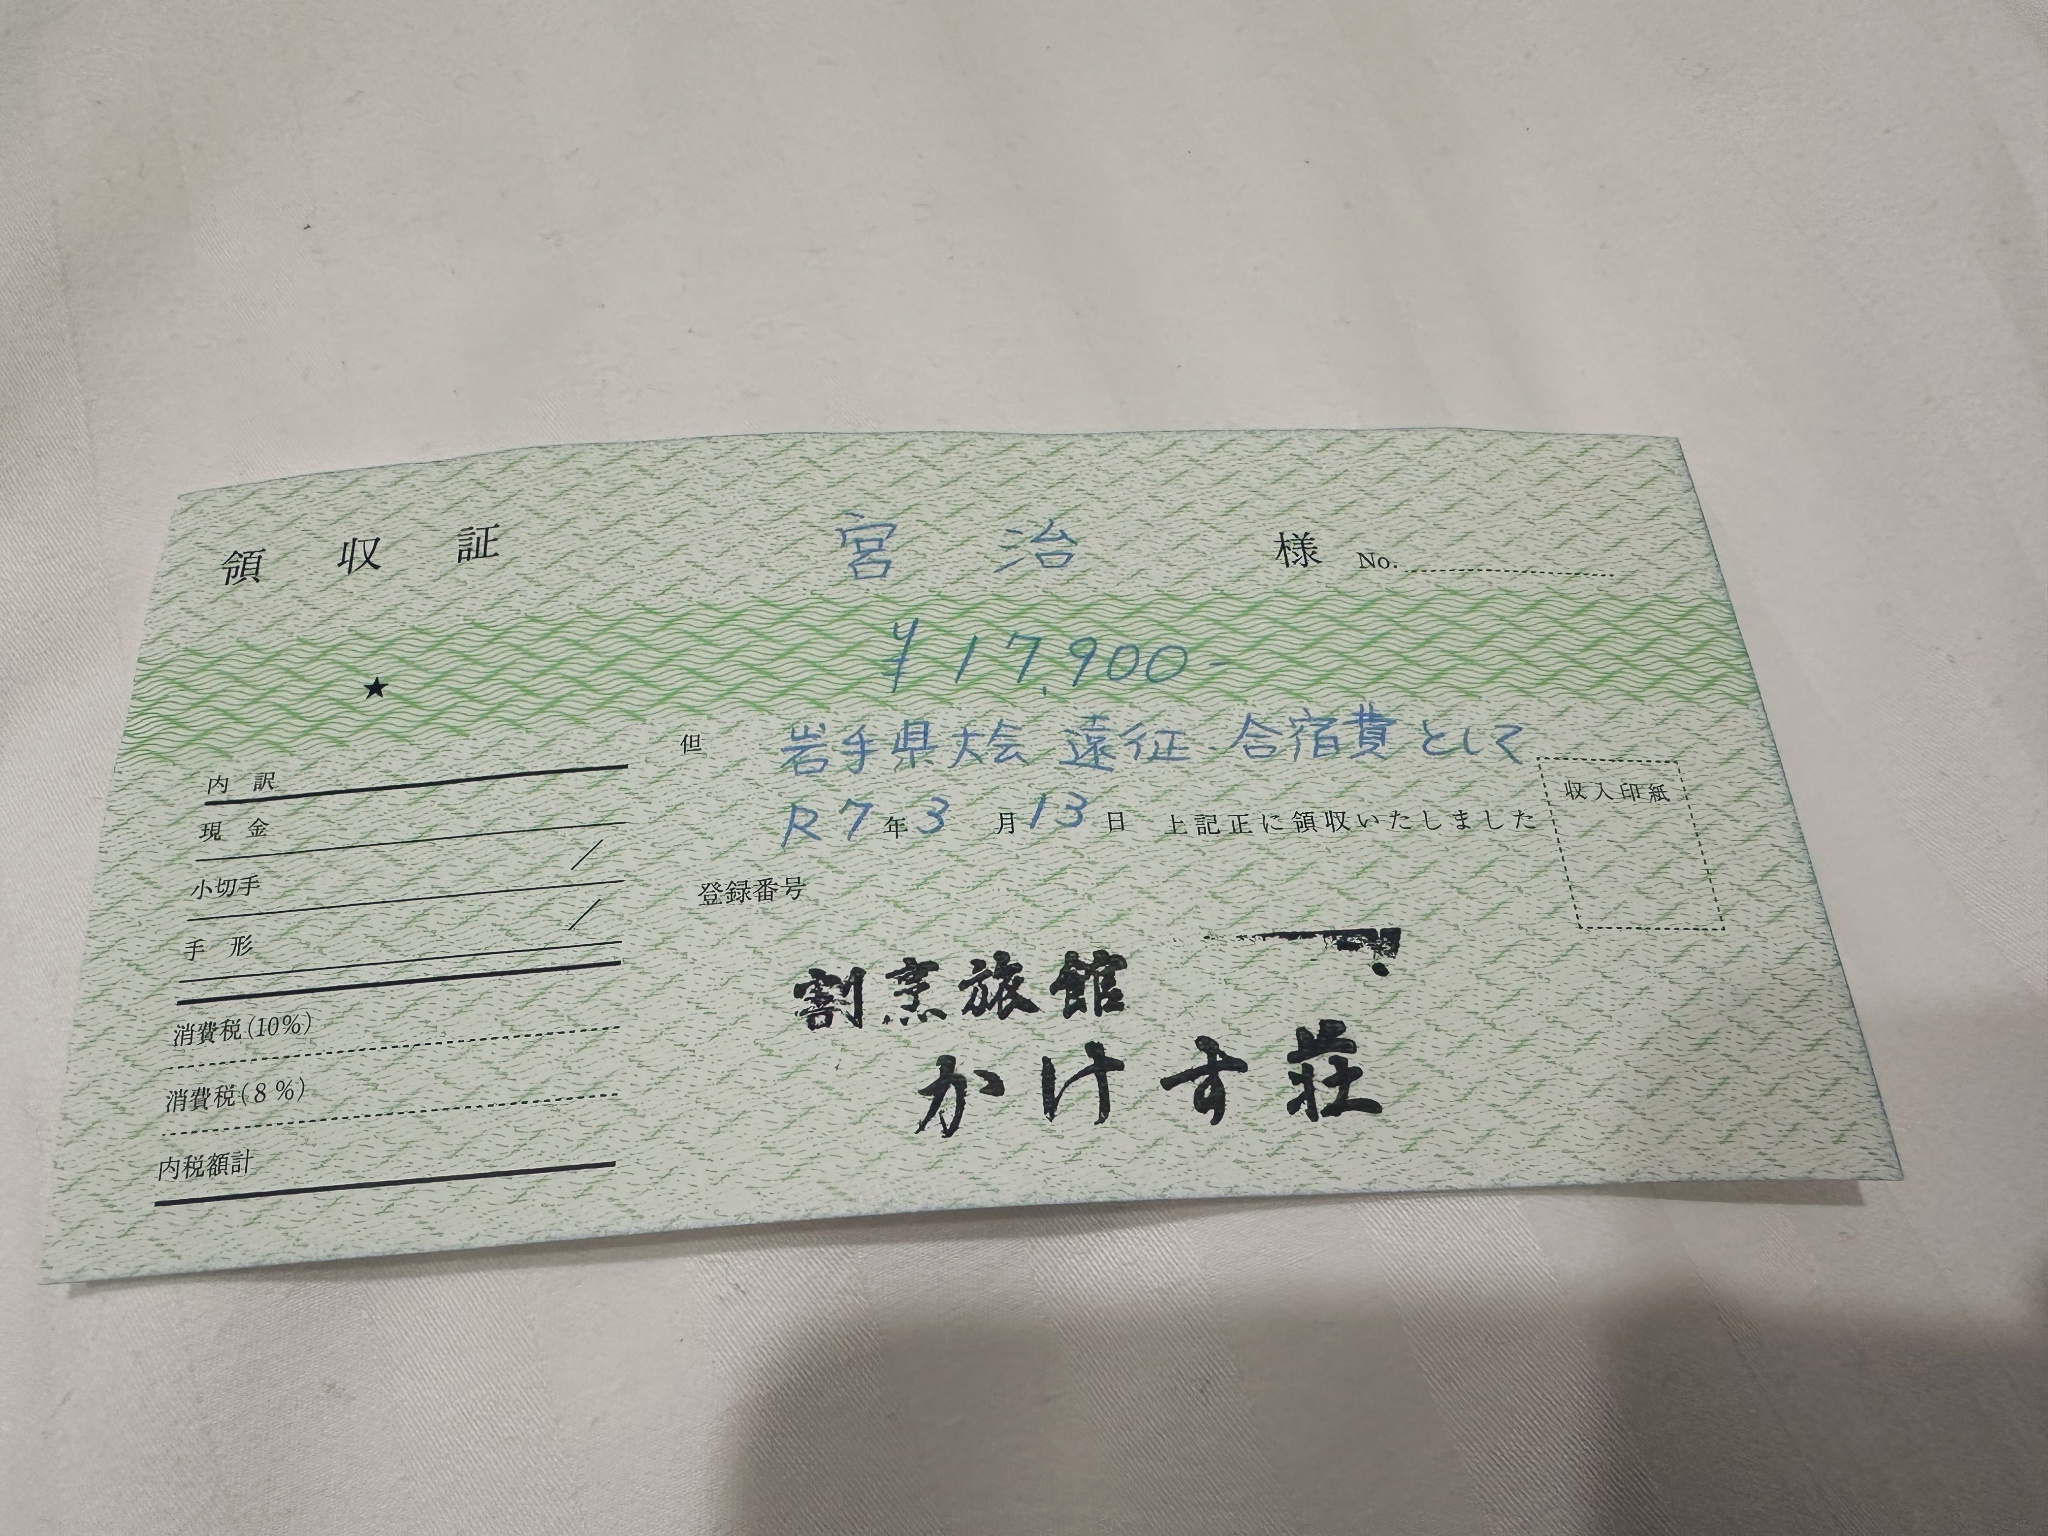 領収証 宮治 様 No.
★ ¥17,900-
但 岩手県大会 遠征 合宿費として
R7年3月13日 上記正に領収いたしました
収入印紙
内訳
現金
小切手 /
手形 /
消費税(10%)
消費税(8%)
内税額計
登録番号
割烹旅館
かけす荘